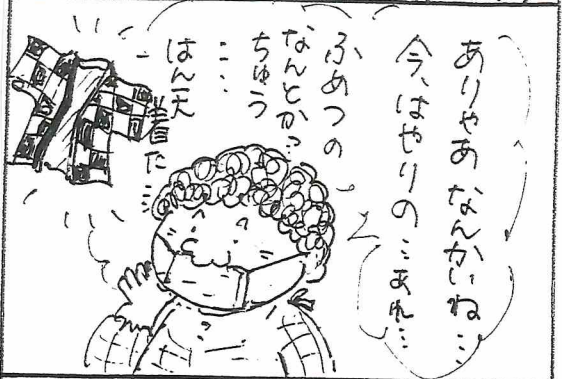 ありゃあ なんかいね…
今、はやりの…あれ…
ふめつの
なんとかっ
ちゅう
…、
はん天
着た…